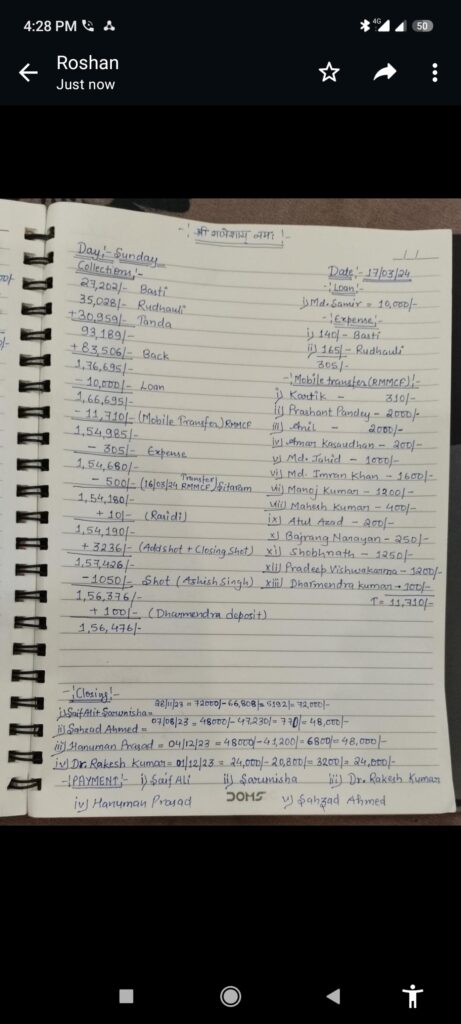 4:28 PM
4G
50
Roshan
Just now
-: श्री गणेशाय नमः :-
Day:- Sunday
Collections:-
27,202/- Basti
35,028/- Rudhauli
+30,959/- Tanda
93,189/-
+ 83,506/- Back
1,76,695/-
- 10,000/- Loan
1,66,695/-
- 11,710/- (Mobile Transfer) RMMCF
1,54,985/-
- 305/- Expense
1,54,680/-
- 500/- (16/03/24 Transfer RMMCF) Sitaram
1,54,180/-
+ 10/- (Rasidi)
1,54,190/-
+ 3236/- (Addshot + Closing Shot)
1,57,426/-
- 1050/- Shot (Ashish Singh)
1,56,376/-
+ 100/- (Dharmendra deposit)
1,56,476/-
Date:- 17/03/24
-: Loan:-
i) Md. Samir = 10,000/-
-: Expense:-
i) 140/- Basti
ii) 165/- Rudhauli
305/-
-: Mobile transfer (RMMCF):-
i) Kartik - 310/-
ii) Prashant Pandey - 2000/-
iii) Anil - 2000/-
iv) Aman Kasaudhan - 200/-
v) Md. Jahid - 1000/-
vi) Md. Imran Khan - 1600/-
vii) Manoj Kumar - 1200/-
viii) Mahesh Kumar - 400/-
ix) Atul Azad - 200/-
x) Bajrang Narayan - 250/-
xi) Shobhnath - 1250/-
xii) Pradeep Vishwakarma - 1200/-
xiii) Dharmendra Kumar - 100/-
T = 11,710/-
-: Closing:-
i) Saif Ali + Sarunisha = 28/11/23 = 72000/- - 66,808/- = 5192/- = 72,000/-
ii) Sahzad Ahmed = 07/08/23 = 48000/- - 47,230/- = 770/- = 48,000/-
iii) Hanuman Prasad = 04/12/23 = 48000/- - 41,200/- = 6800/- = 48,000/-
iv) Dr. Rakesh Kumar = 01/12/23 = 24,000/- - 20,800/- = 3200/- = 24,000/-
-: PAYMENT:- i) Saif Ali ii) Sarunisha iii) Dr. Rakesh Kumar
iv) Hanuman Prasad v) Sahzad Ahmed
DOMS